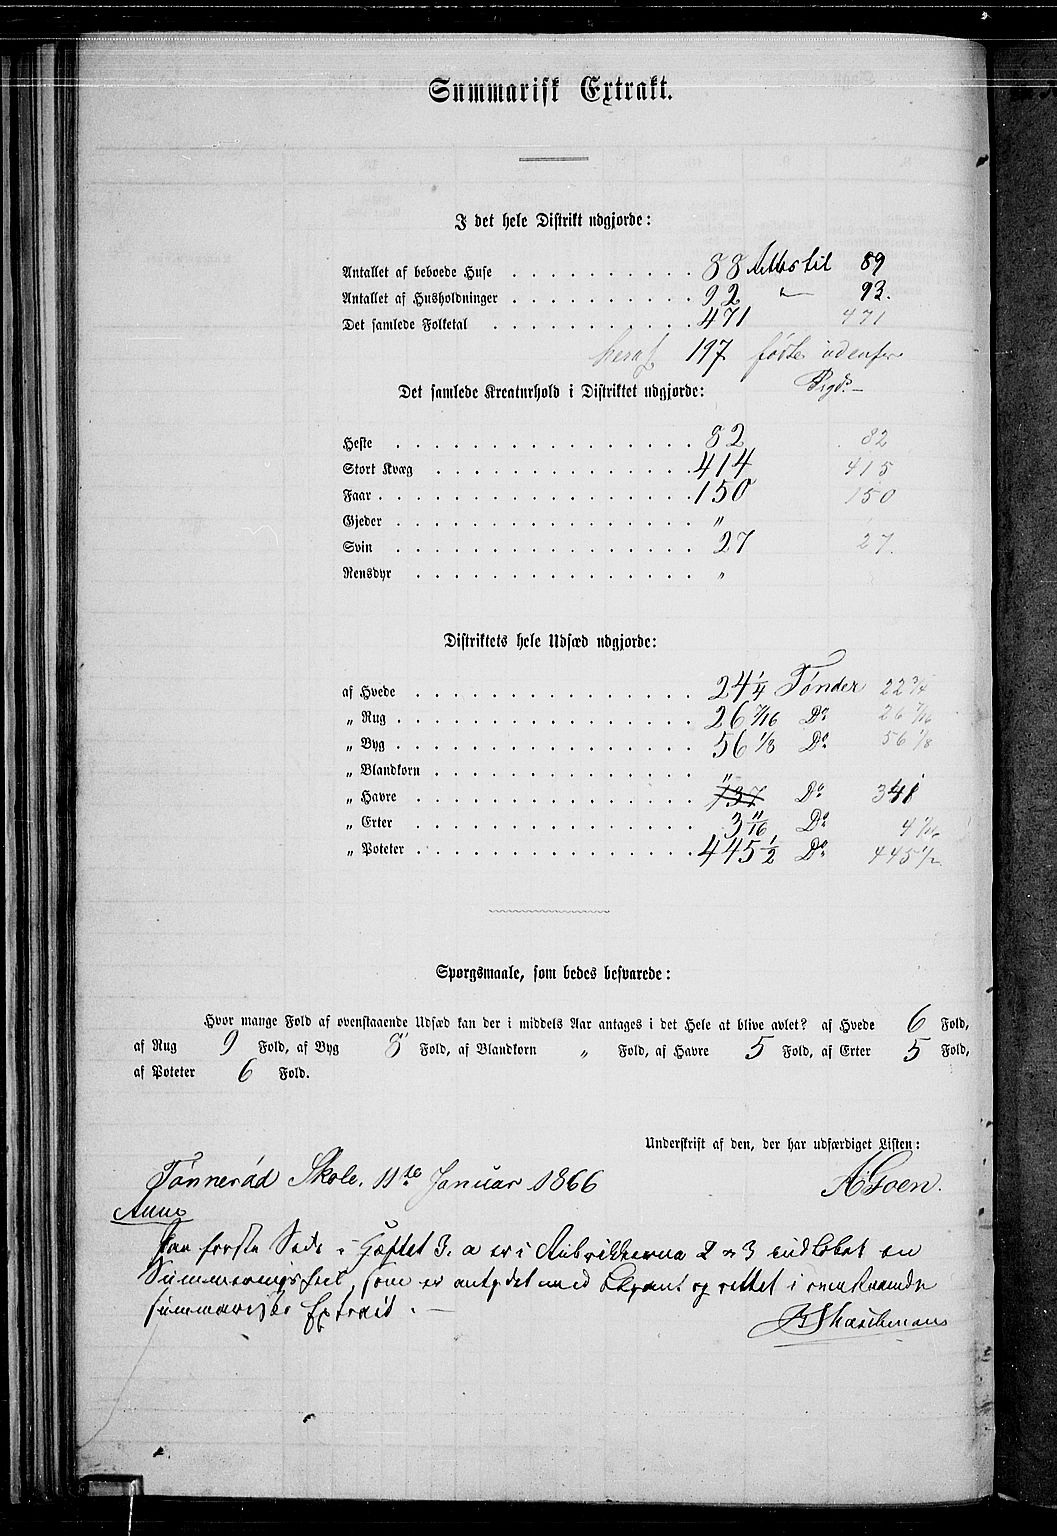 Summarisk Extrakt.
I det hele Distrikt udgjorde:
Antallet af beboede Huse . . . . . . . . . . 88 Rettes til 89
Antallet af Husholdninger . . . . . . . . . . 92 " 93.
Det samlede Folketal . . . . . . . . . . . 471 471
heraf 197 fødte udenfor
Bygd. —
Det samlede Kreaturhold i Distriktet udgjorde:
Heste . . . . . . . . . . . . . . . . 82 82
Stort Kvæg . . . . . . . . . . . . . . 414 415
Faar . . . . . . . . . . . . . . . . . 150 150
Gjeder . . . . . . . . . . . . . . . . "
Svin . . . . . . . . . . . . . . . . 27 27.
Rensdyr . . . . . . . . . . . . . . . "
Distriktets hele Udsæd udgjorde:
af Hvede . . . . . . . . . . . . . . . 24 1/4 Tønder 22 3/4
„ Rug . . . . . . . . . . . . . . . . 26 7/16 Do 26 7/16
„ Byg . . . . . . . . . . . . . . . . 56 1/8 Do 56 1/8
„ Blandkorn . . . . . . . . . . . . . . "
„ Havre . . . . . . . . . . . . . . . 737 Do 341
„ Erter . . . . . . . . . . . . . . . 3 11/16 Do 4 7/16
„ Poteter . . . . . . . . . . . . . . . 445 1/2 Do 445 1/2
Spørgsmaale, som bedes besvarede:
Hvor mange Fold af ovenstaaende Udsæd kan der i middels Aar antages i det Hele at blive avlet? af Hvede 6 Fold,
af Rug 9 Fold, af Byg 8 Fold, af Blandkorn „ Fold, af Havre 5 Fold, af Erter 5 Fold,
af Poteter 6 Fold.
Underskrift af den, der har udfærdiget Listen:
Tønnerød Skole, 11te Januar 1866
Anm
Paa første Side i Hæftet 3. a er i Rubrikkerne 2 og 3 indløbet en
Summeringsfeil, som er antydet med Blyant og rettet i omstaaende
summariske Extract. —